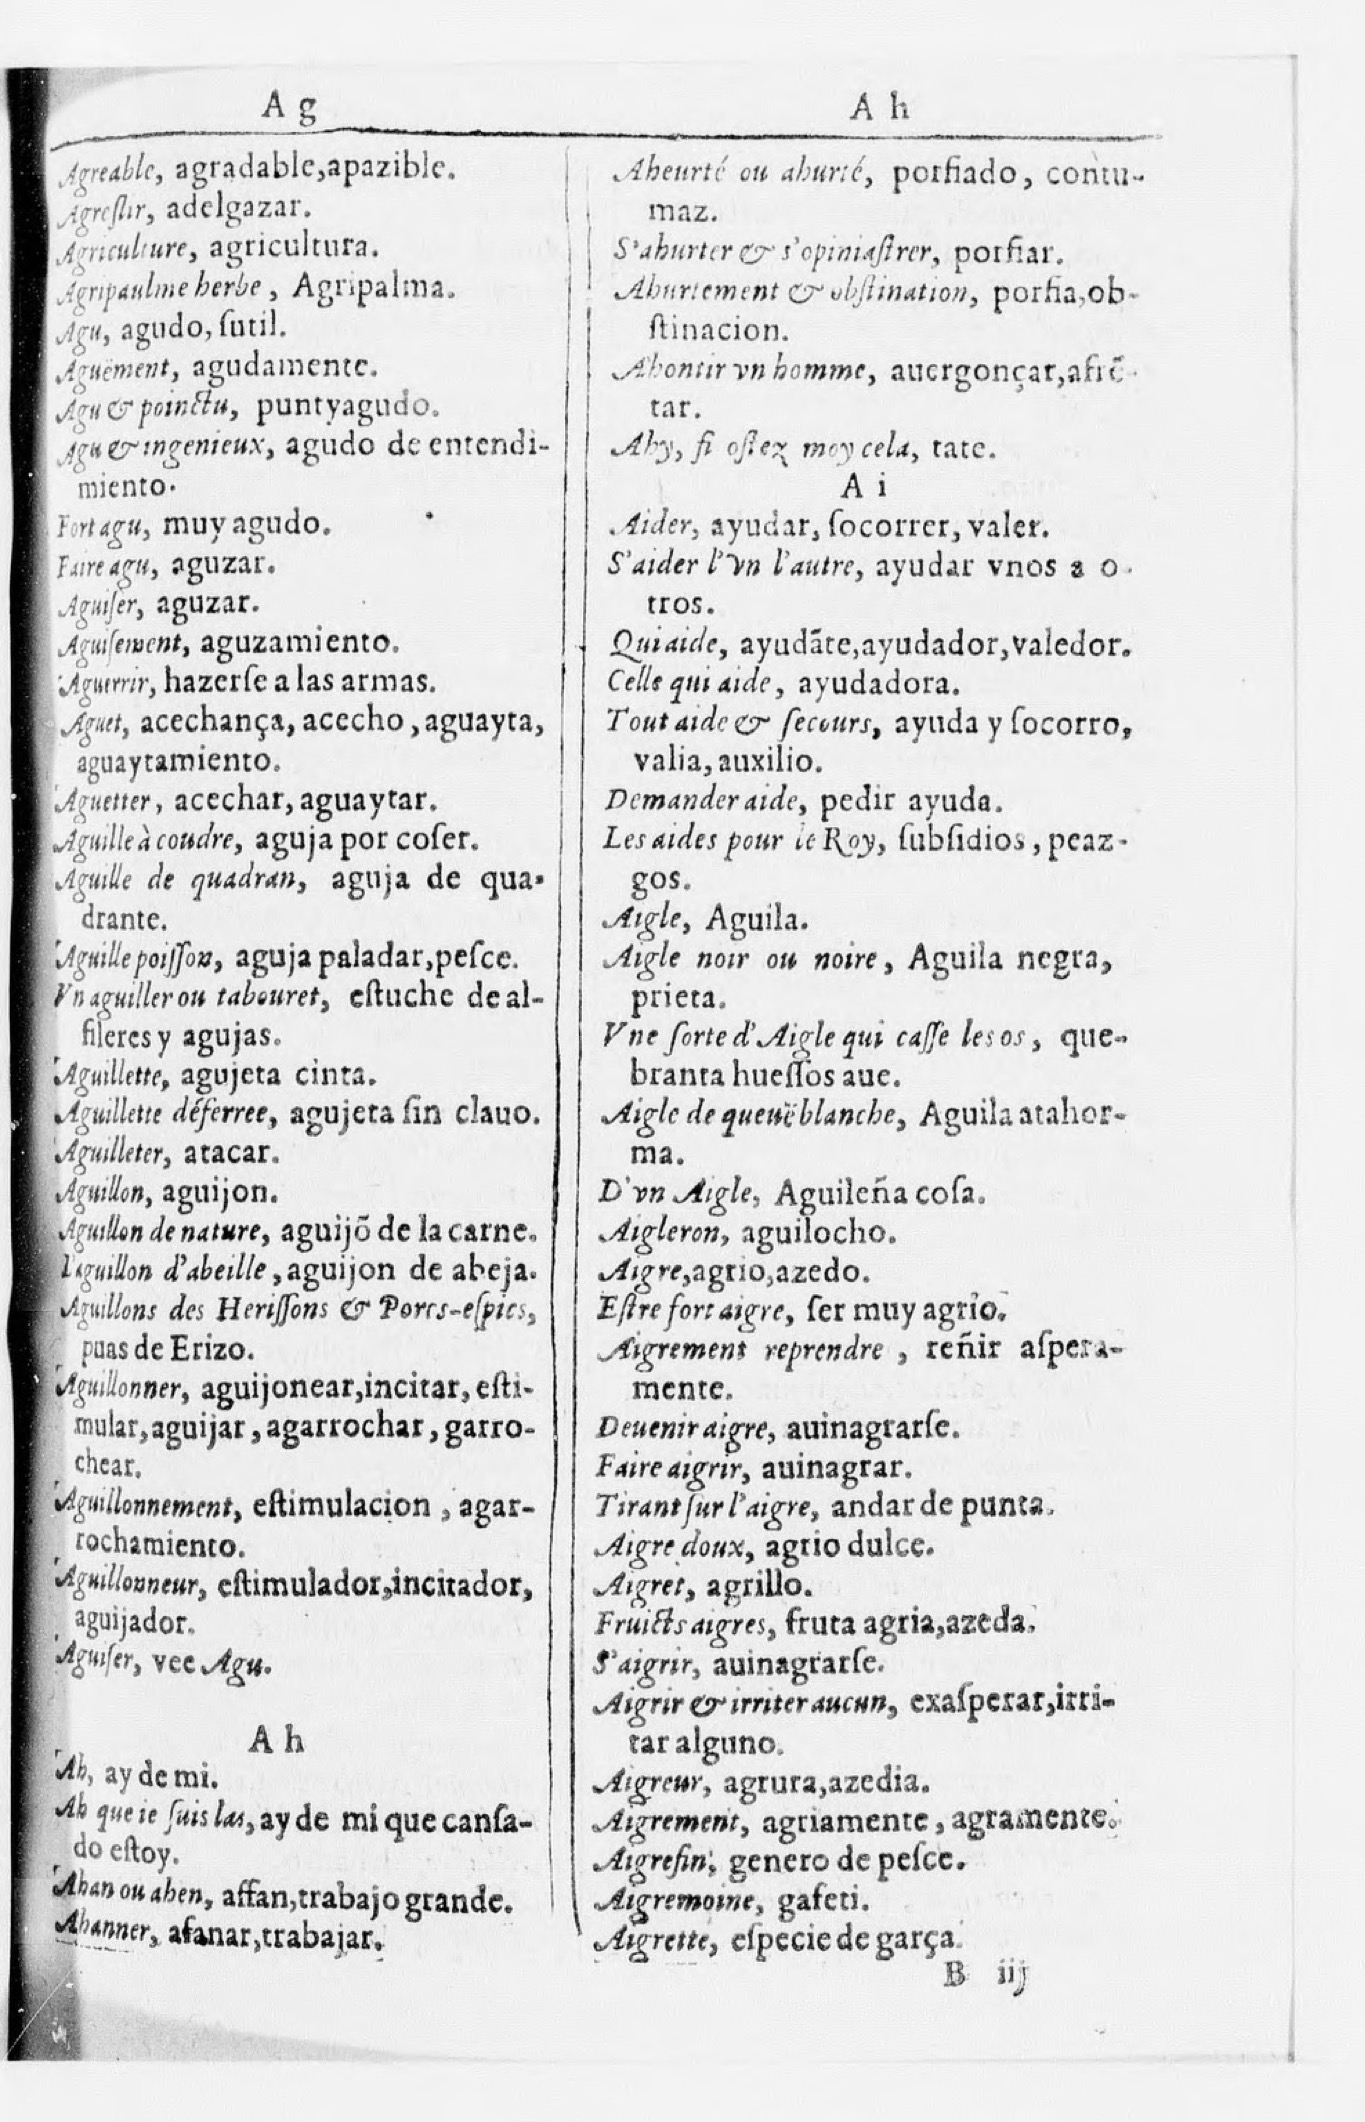 Ag
Agreable, agradable,apazible.
Agreſlir, adelgazar.
Agriculture, agricultura.
Agripaulme herbe, Agripalma.
Agu, agudo, ſutil.
Aguëment, agudamente.
Agu & poinctu, puntyagudo.
Agu & ingenieux, agudo de entendi-
miento.
Fort agu, muy agudo.
Faire agu, aguzar.
Aguiſer, aguzar.
Aguiſement, aguzamiento.
Aguerrir, hazerſe a las armas.
Aguet, acechança, acecho, aguayta,
aguaytamiento.
Aguetter, acechar, aguaytar.
Aguille à coudre, aguja por coſer.
Aguille de quadran, aguja de qua-
drante.
Aguille poiſſon, aguja paladar,peſce.
Vn aguiller ou tabouret, eſtuche de al-
fileres y agujas.
Aguillette, agujeta cinta.
Aguillette déferree, agujeta ſin clauo.
Aguilleter, atacar.
Aguillon, aguijon.
Aguillon de nature, aguijõ de la carne.
L'aguillon d'abeille, aguijon de abeja.
Aguillons des Heriſſons & Porcs-eſpics,
puas de Erizo.
Aguillonner, aguijonear,incitar, eſti-
mular,aguijar, agarrochar, garro-
chear.
Aguillonnement, eſtimulacion, agar-
rochamiento.
Aguillonneur, eſtimulador,incitador,
aguijador.
Aguiſer, vee Agu.
Ah
Ah, ay de mi.
Ah que ie ſuis las, ay de mi que canſa-
do eſtoy.
Ahan ou ahen, affan,trabajo grande.
Ahanner, afanar,trabajar.
Ah
Aheurté ou ahurté, porfiado, contu-
maz.
S'ahurter & s'opiniaſtrer, porfiar.
Ahurtement & obſtination, porfia,ob-
ſtinacion.
Ahontir vn homme, auergonçar,afrẽ-
tar.
Ahy, fi oſtez moy cela, tate.
Ai
Aider, ayudar, ſocorrer, valer.
S'aider l'vn l'autre, ayudar vnos a o-
tros.
Qui aide, ayudãte,ayudador,valedor.
Celle qui aide, ayudadora.
Tout aide & ſecours, ayuda y ſocorro,
valia, auxilio.
Demander aide, pedir ayuda.
Les aides pour le Roy, ſubſidios, peaz-
gos.
Aigle, Aguila.
Aigle noir ou noire, Aguila negra,
prieta.
Vne ſorte d'Aigle qui caſſe les os, que-
branta hueſſos aue.
Aigle de queuë blanche, Aguila atahor-
ma.
D'vn Aigle, Aguileña coſa.
Aigleron, aguilocho.
Aigre,agrio,azedo.
Eſtre fort aigre, ſer muy agrio.
Aigrement reprendre, reñir aſpera-
mente.
Deuenir aigre, auinagrarſe.
Faire aigrir, auinagrar.
Tirant ſur l'aigre, andar de punta.
Aigre doux, agrio dulce.
Aigret, agrillo.
Fruicts aigres, fruta agria,azeda.
S'aigrir, auinagrarſe.
Aigrir & irriter aucun, exaſperar,irri-
tar alguno.
Aigreur, agrura,azedia.
Aigrement, agriamente, agramente.
Aigrefin, genero de peſce.
Aigremoine, gafeti.
Aigrette, eſpecie de garça.
B iij